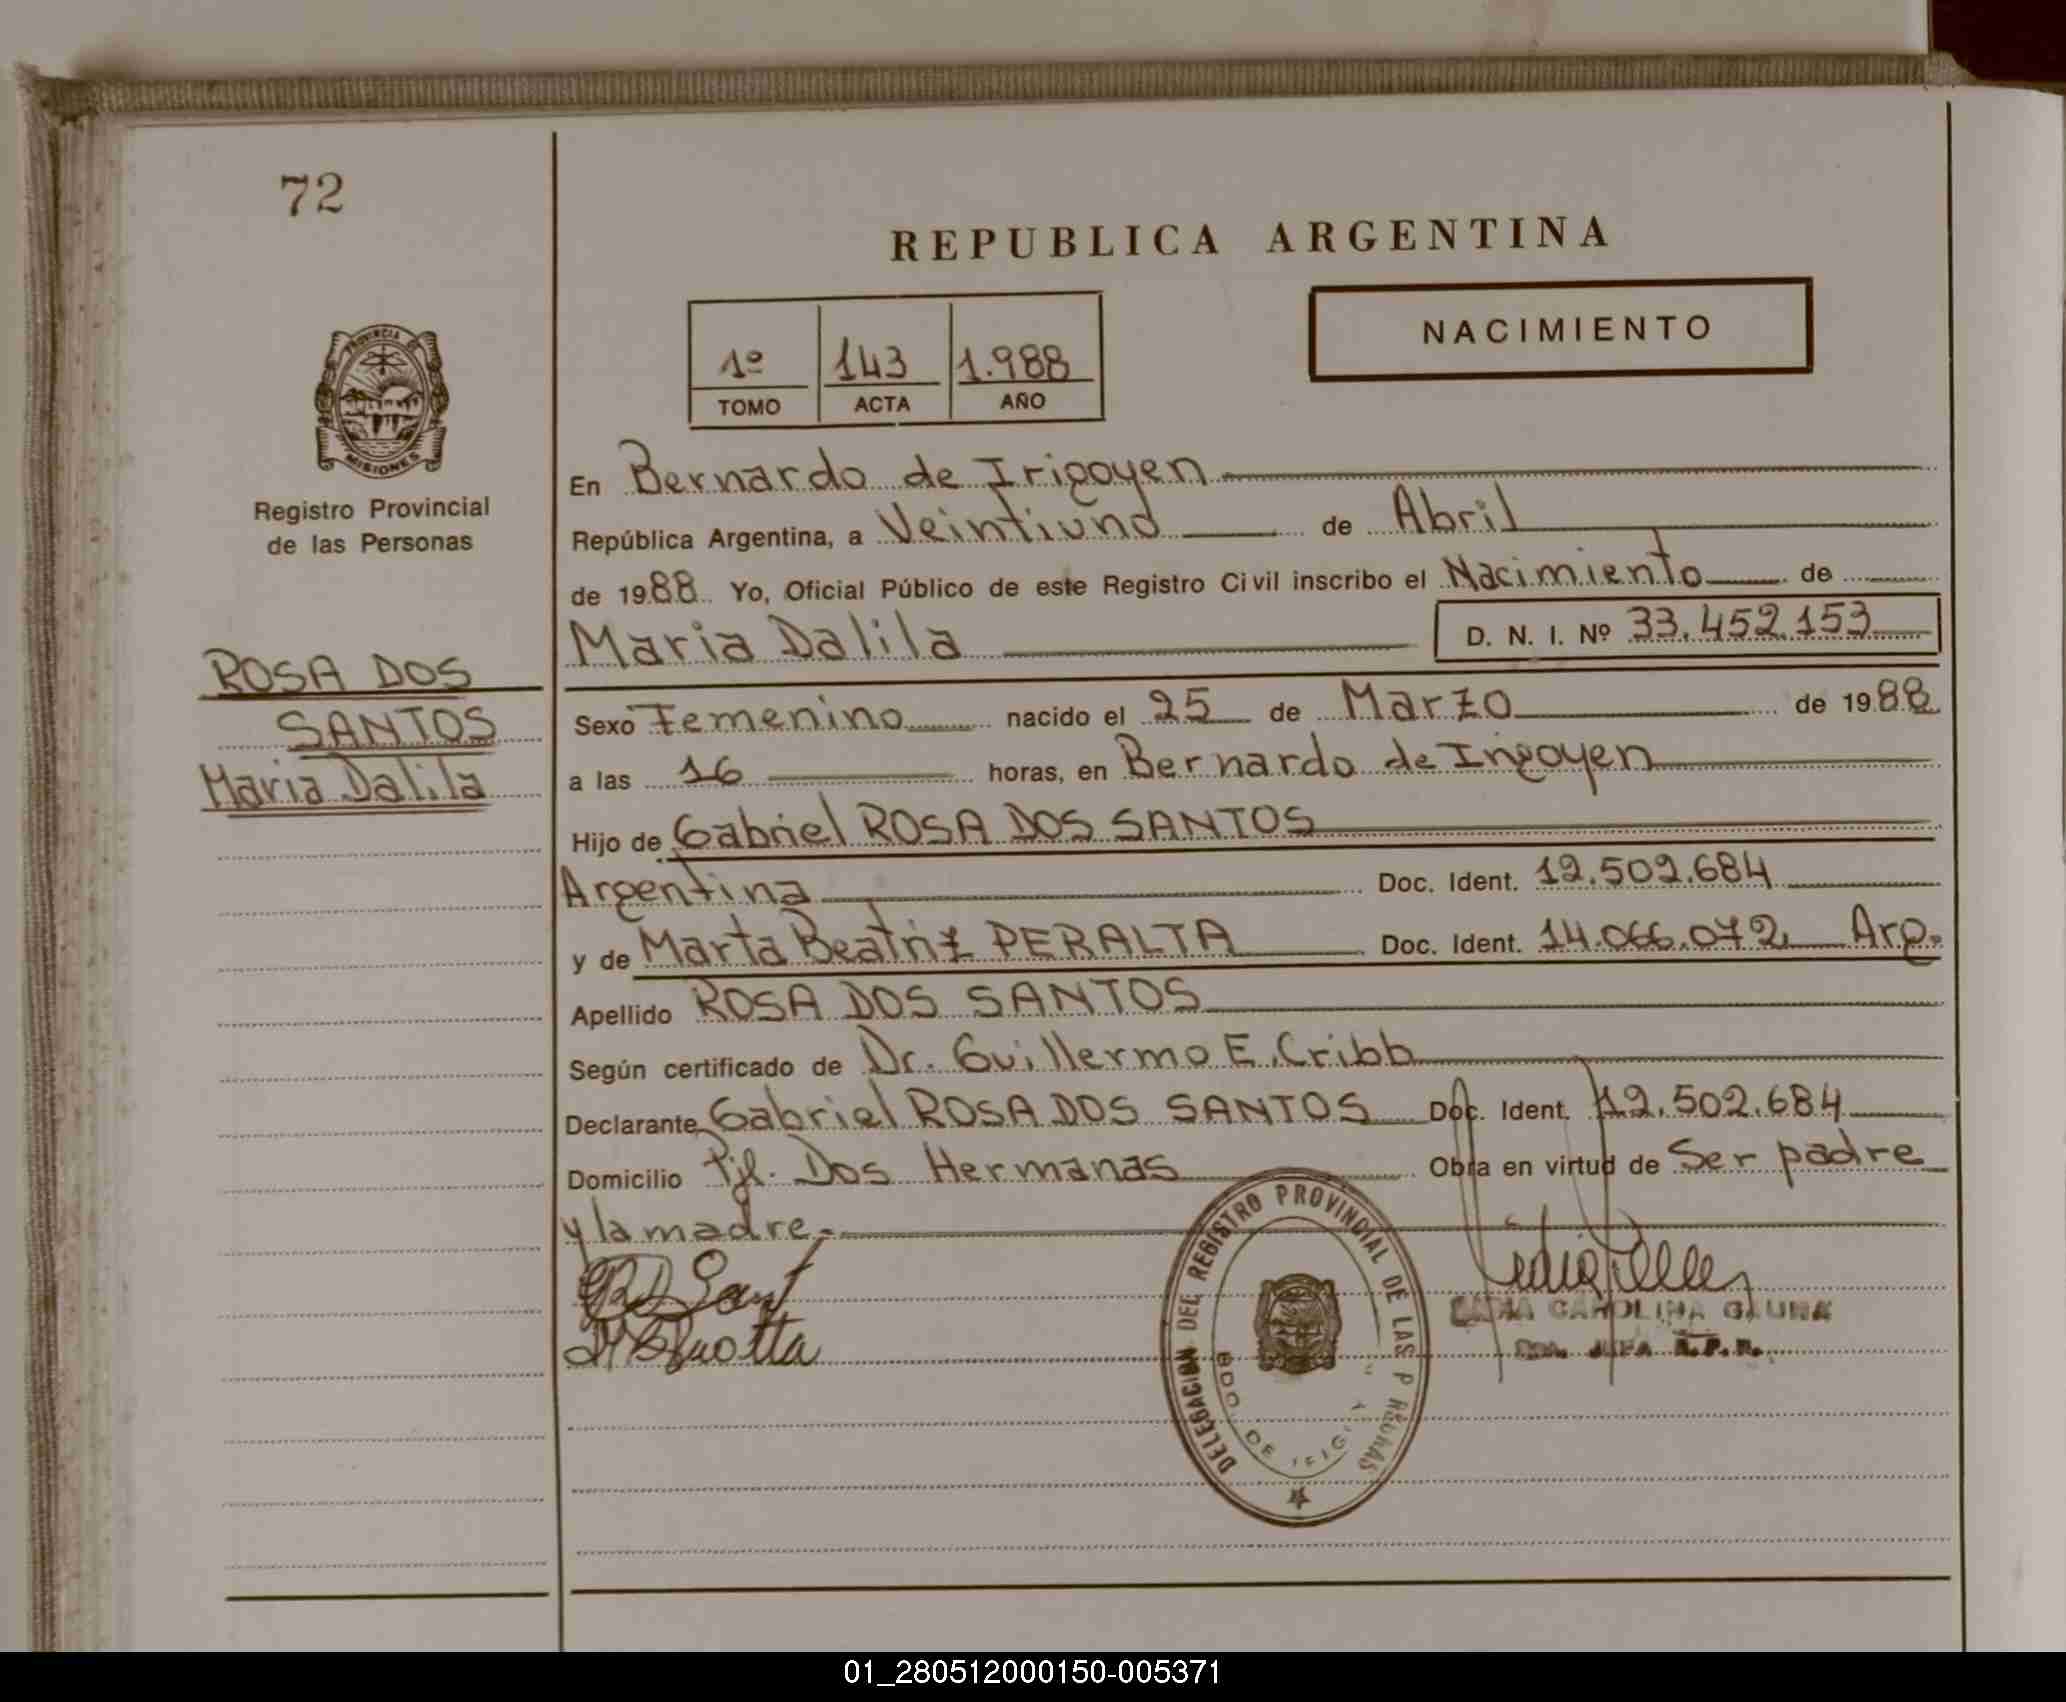 72
REPUBLICA ARGENTINA
NACIMIENTO
1º 143 1.988
TOMO ACTA AÑO
PROVINCIA DE
MISIONES
Registro Provincial
de las Personas
ROSA DOS
SANTOS
Maria Dalila
En Bernardo de Irigoyen
República Argentina, a Veintiuno de Abril
de 1988 Yo, Oficial Público de este Registro Civil inscribo el Nacimiento de
Maria Dalila D. N. I. Nº 33.452.153
Sexo Femenino nacido el 25 de Marzo de 1988
a las 16 horas, en Bernardo de Irigoyen
Hijo de Gabriel ROSA DOS SANTOS
Argentina Doc. Ident. 12.502.684
y de Marta Beatriz PERALTA Doc. Ident. 14.066.072 Arg.
Apellido ROSA DOS SANTOS
Según certificado de Dr. Guillermo E. Cribb
Declarante Gabriel ROSA DOS SANTOS Doc. Ident. 12.502.684
Domicilio Pjl. Dos Hermanas Obra en virtud de Ser padre
y la madre.-
DELEGACION DEL REGISTRO PROVINCIAL DE LAS PERSONAS
BDO. DE IRIGOYEN
CAROLINA GAUNA
JEFA R.P.P.
01_280512000150-005371